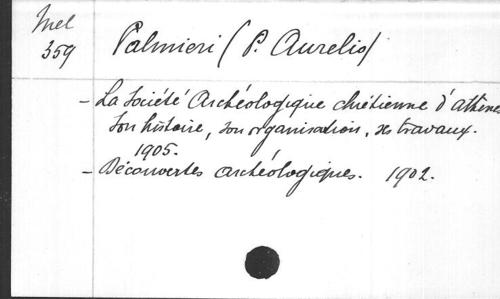 Mel
359
Palmieri (P. Aurelio)
- La Société Archéologique chrétienne d'athènes
son histoire, son organisation, ses travaux.
1905.
- Découvertes archéologiques. 1902.